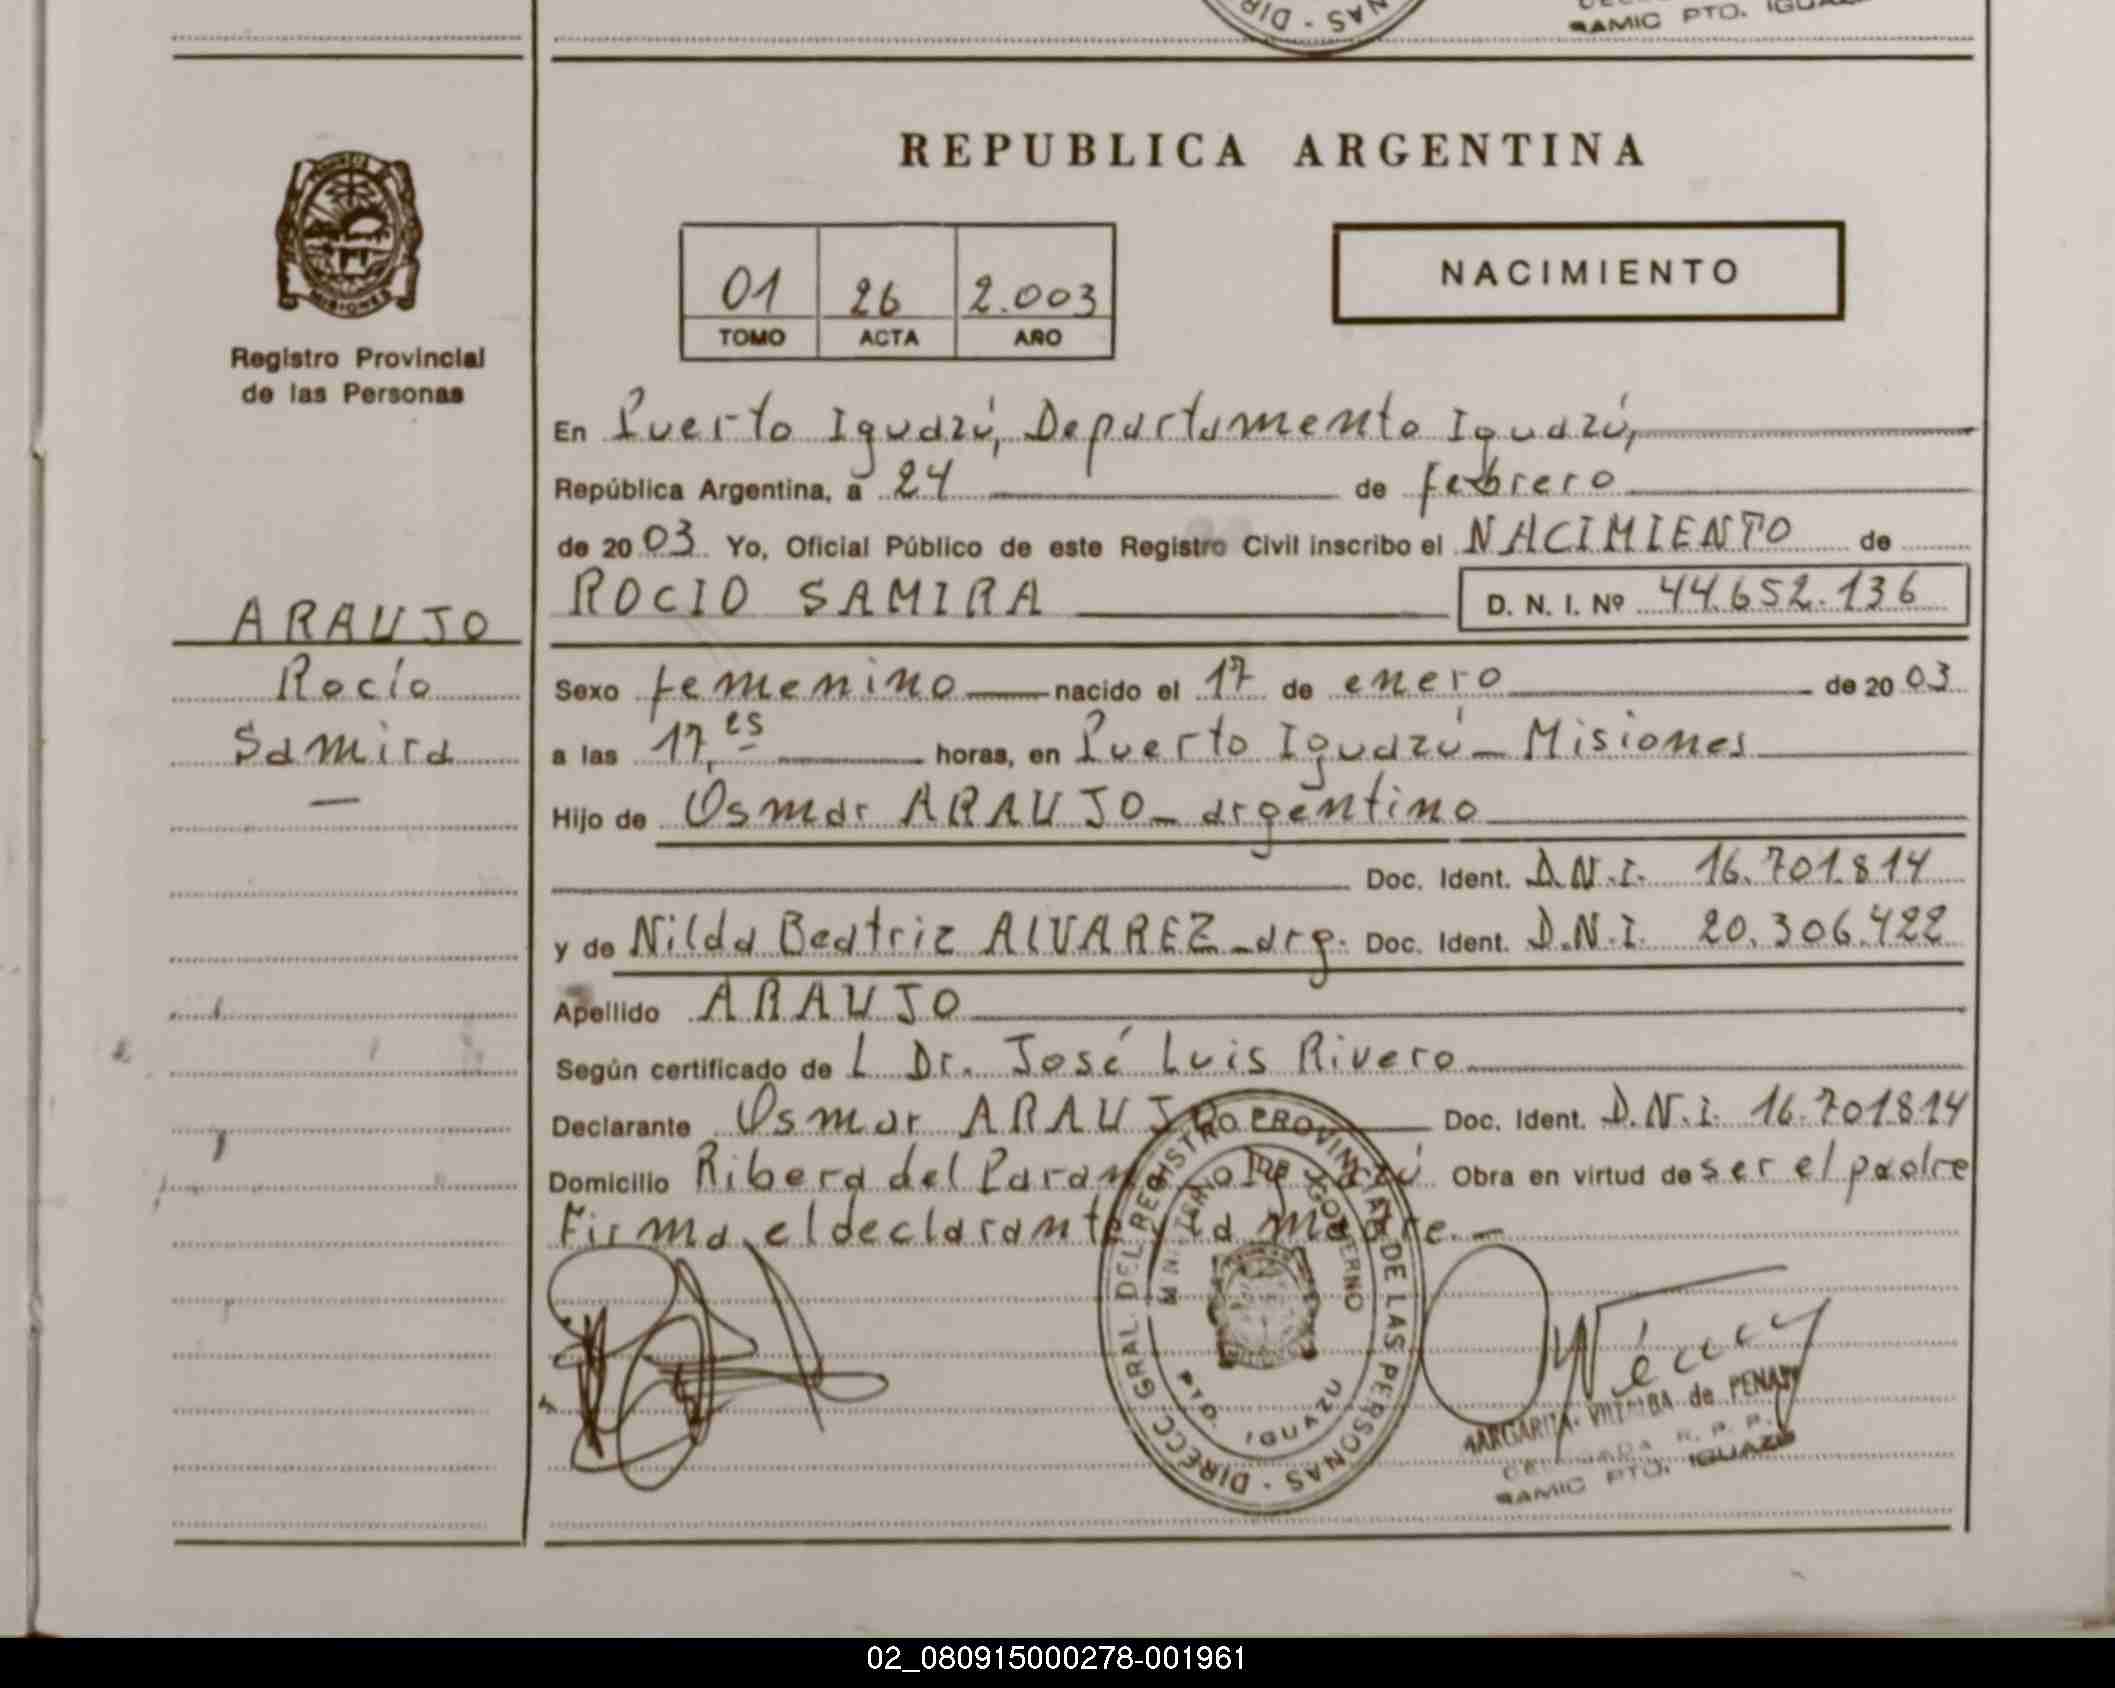 DIR · NAS
RAMIC PTO. IGUAZU
REPUBLICA ARGENTINA
MISIONES
01 26 2.003
TOMO ACTA AÑO
NACIMIENTO
Registro Provincial
de las Personas
En Puerto Iguazú, Departamento Iguazú,
República Argentina, a 24 de febrero
de 2003 Yo, Oficial Público de este Registro Civil inscribo el NACIMIENTO de
ROCIO SAMIRA D. N. I. Nº 44.652.136
ARAUJO
Rocío
Samira
Sexo femenino nacido el 17 de enero de 2003
a las 17,es horas, en Puerto Iguazú - Misiones
Hijo de Osmar ARAUJO - argentino
Doc. Ident. D.N.I. 16.701.814
y de Nilda Beatriz ALVAREZ - arg. Doc. Ident. D.N.I. 20.306.422
Apellido ARAUJO
Según certificado de L Dr. José Luis Rivero
Declarante Osmar ARAUJO Doc. Ident. D.N.I. 16.701.814
Domicilio Ribera del Paraná Obra en virtud de ser el padre
Firma el declarante y la madre.-
DIRECC GRAL DEL REGISTRO PROVINCIAL DE LAS PERSONAS
MINISTERIO DE GOBIERNO
PTO. IGUAZU
MARGARITA VILLALBA de PENAS
DELEGADA R. P. P.
RAMIC PTO. IGUAZU
02_080915000278-001961